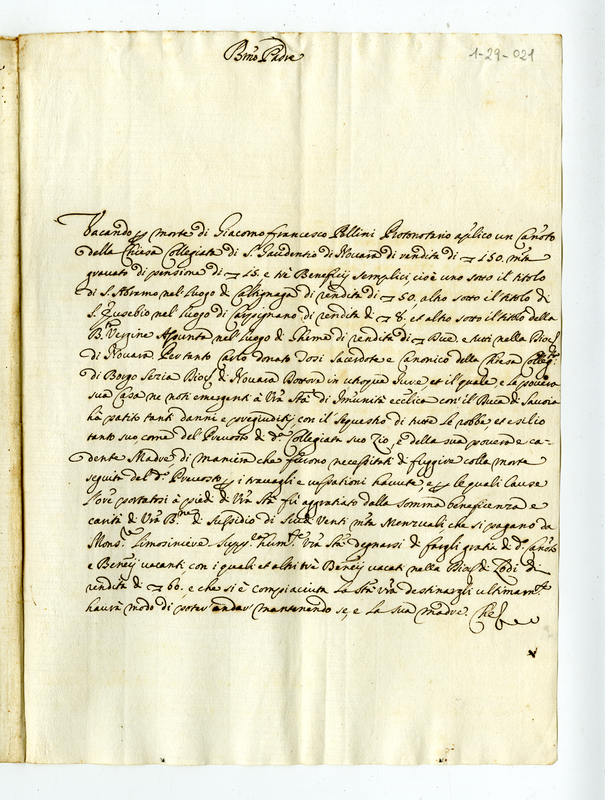 1-29-021
Bmo Padre
Vacando p morte di Giacomo Francesco Pollini Protonotario aplico un Canoto
della Chiesa Collegiata di S. Gaudentio di Novara di rendita di 150. mta
gravato di pensione di 15. e trè Beneficij semplici, cioè uno sotto il titolo
di S. Abramo nel luogo di Caltignaga di rendita di 50. altro sotto il titolo di
S. Eusebio nel luogo di Carpignano di rendita di 8. et altro sotto il titolo della
B. Vergine Assunta nel luogo di Gheme di rendita di Due. e tutti nella Dioc.
di Novara. Per tanto Carlo donato Dosi Sacerdote e Canonico della Chiesa Colleg.
di Borgo Sezia Dioc. di Novara Dottore in utroque Jure, et il quale, e la povera
sua Casa ne noti emergenti à Vra Stà di Imunità eccllica con il Duca di Savoia
hà patito tanti danni e pregiuditij con il sequestro di tutte le robbe, et esilio
tanto suo, come del Prevosto di d. Collegiata suo Zio, e della sua povera e ca-
dente Madre di maniera che furono necessitati di fuggire colla morte
seguita del d. Prevosto p i travagli e vessationi havute, e p le quali Cause
l'Ore portatosi à piedi di Vra Stà fù aggratiato dalla somma beneficenza e
carità di Vra Bne di sussidio di Scudi Venti mta Menzuali che si pagano da
Mons. Limosiniere. Supp. hum. Vra Stà degnarsi di fargli gratia di d. Canoto
e Beneij vacanti, con i quali et altri trè Beneij vacati nella Dioc. di Lodi di
rendita di 60. e che si è compiaciuta la Stà Vra destinargli ultimamte
haurà modo di poter andar mantenendo se, e la sua madre. Che